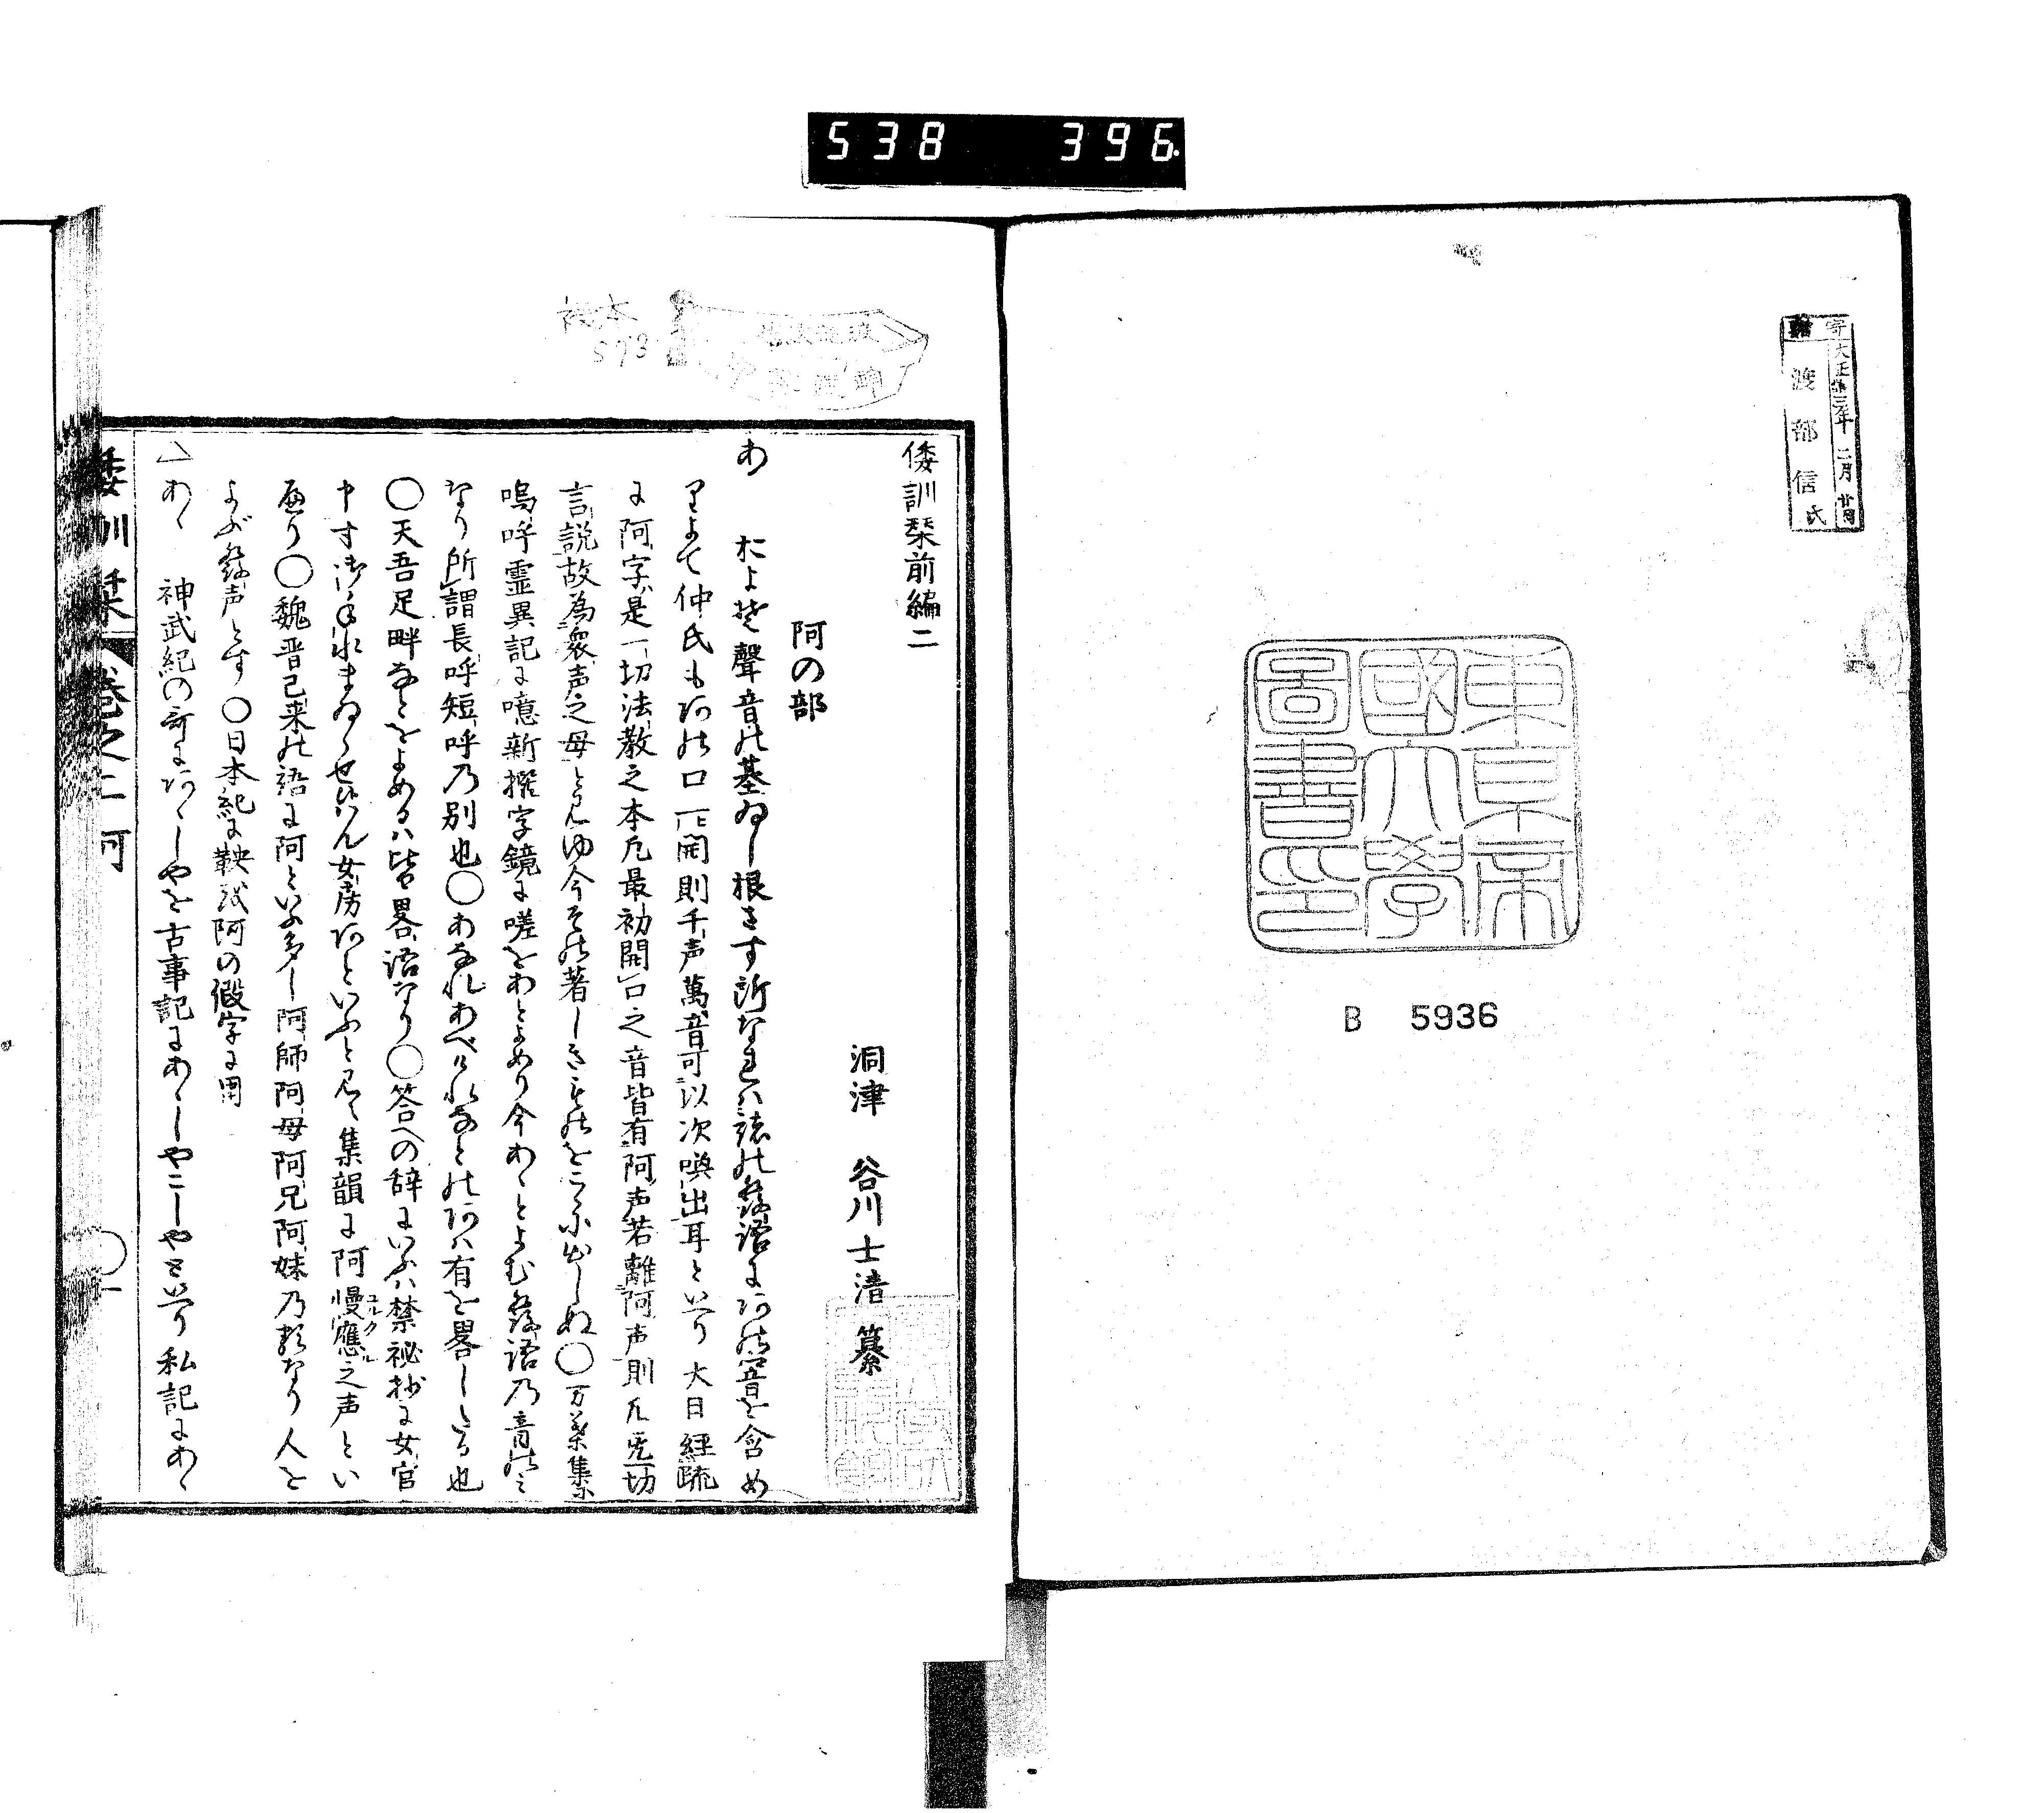 538 396
寄贈
大正第三年二月廿四日
渡部信氏
東京帝
國大學
圖書印
B 5936
573
倭訓栞前編二
洞津 谷川士清 纂
阿の部
あ およそ聲音の基ゐし根さす所なれハ諸の發語にアの響を含め
りよて仲氏もアの口一ヒ開則千声萬音可以次喚出耳といへり大日経疏
に阿字是一切法教之本凡最初開口之音皆有阿声若離阿声則凡无一切
言説故為衆声之母と見ゆ今その著しきものをこゝに出しぬ〇万葉集
嗚呼霊異記に噫新撰字鏡に嗟をあとよめり今あゝとよむ發語乃音のミ
なり所謂長呼短呼乃別也〇あなれあべけれなとのアハ有を畧したる也
〇天吾足畔なとをよめるハ皆畧語なり〇答への辞にいふハ禁祕抄に女官
申す御手水まゐらせけん女房アといふと見え集韻に阿慢應之声とい
へり〇魏晋已来の語に阿といふ多し阿師阿母阿兄阿妹乃類なり人を
よぶ發声とす〇日本紀に鞅或阿の假字に用
あゝ 神武紀の哥にアヽしやを古事記にあゝしやこしやといへり私記にあゝ
倭訓栞 巻之二 阿 〇一